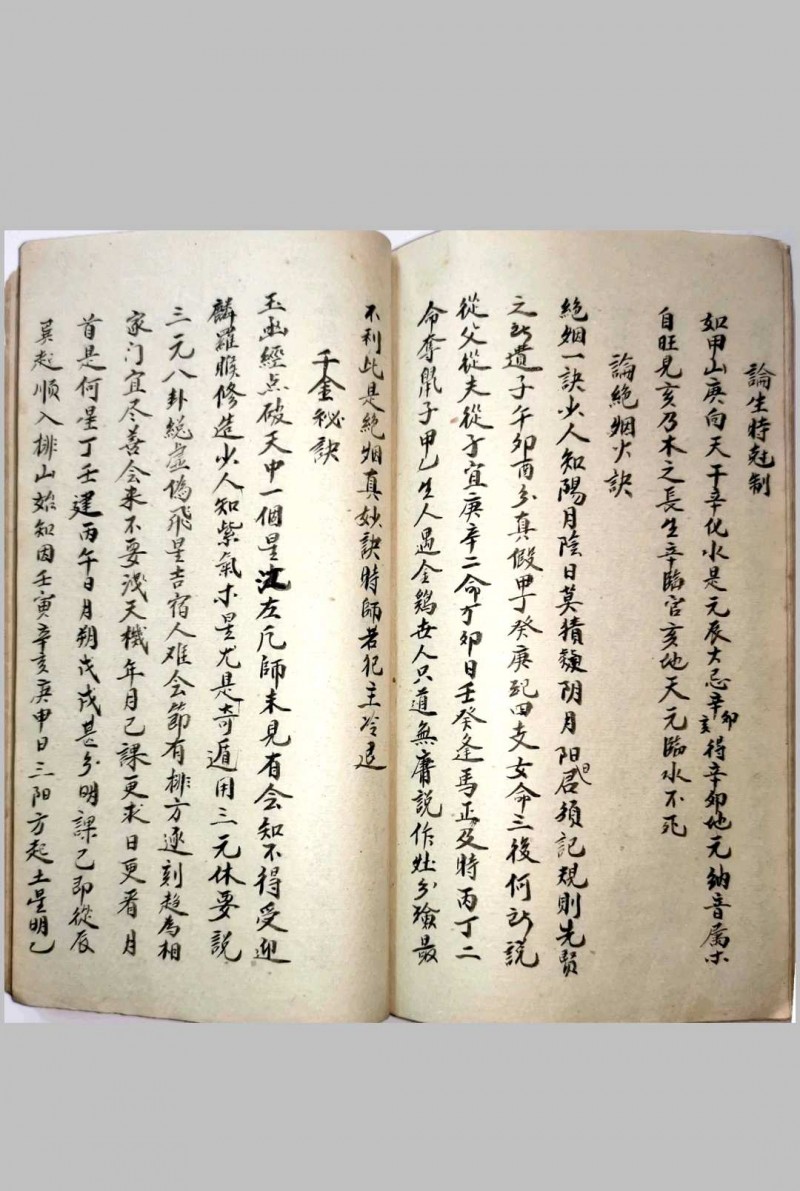 論生時尅制
如甲山庚向天干辛化水是元辰大忌辛卯辛亥得辛卯地元納音属木
自旺見亥乃木之長生辛臨官亥地天元臨水不死
論絶烟火訣
絶烟一訣少人知陽月陰日莫猜疑阴月阳日君须記規則先賢
之所遺子午卯酉分真假甲丁癸庚配四支女命三後何所説
從父從夫從子宜庚辛二命丁卯日壬癸逢馬正及時丙丁二
命奪鼠子甲乙生人遇金鷄世人只道無賡説作灶分險最
不利此是絶烟真妙訣時師若犯主冷退
千金秘訣
玉凾經点破天中一個星左凡師未見有会知不得受迎
麟羅睺修造少人知紫氣木星尤是奇遁用三元休要説
三元八卦総虚偽飛星吉宿人难会節有排方逐刻趋為相
家门宜尽善会来不要洩天機年月己課更求日更看月
首是何星丁壬建丙午日月朔戊戌甚分明課己即從辰
巽起顺入排山始知因壬寅辛亥庚申日三阳方起土星明乙